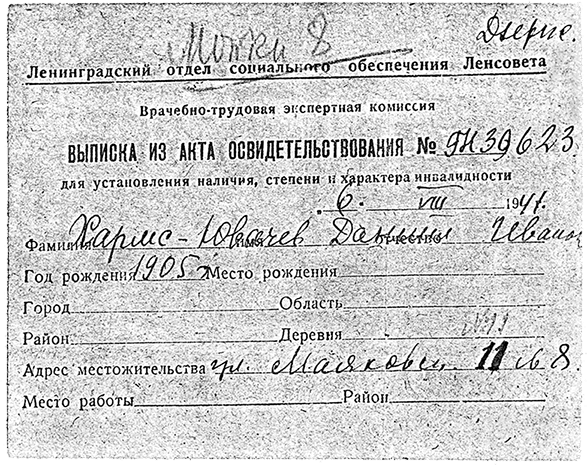 Дзерж.
Ленинградский отдел социального обеспечения Ленсовета
Врачебно-трудовая экспертная комиссия
ВЫПИСКА ИЗ АКТА ОСВИДЕТЕЛЬСТВОВАНИЯ № ГН39623
для установления наличия, степени и характера инвалидности
6 VIII 1941.
Фамилия Хармс-Ювачев имя Даниил отчество Иванов
Год рождения 1905 г Место рождения
Город Область
Район Деревня
Адрес местожительства ул. Маяковск 11 кв 8.
Место работы Район